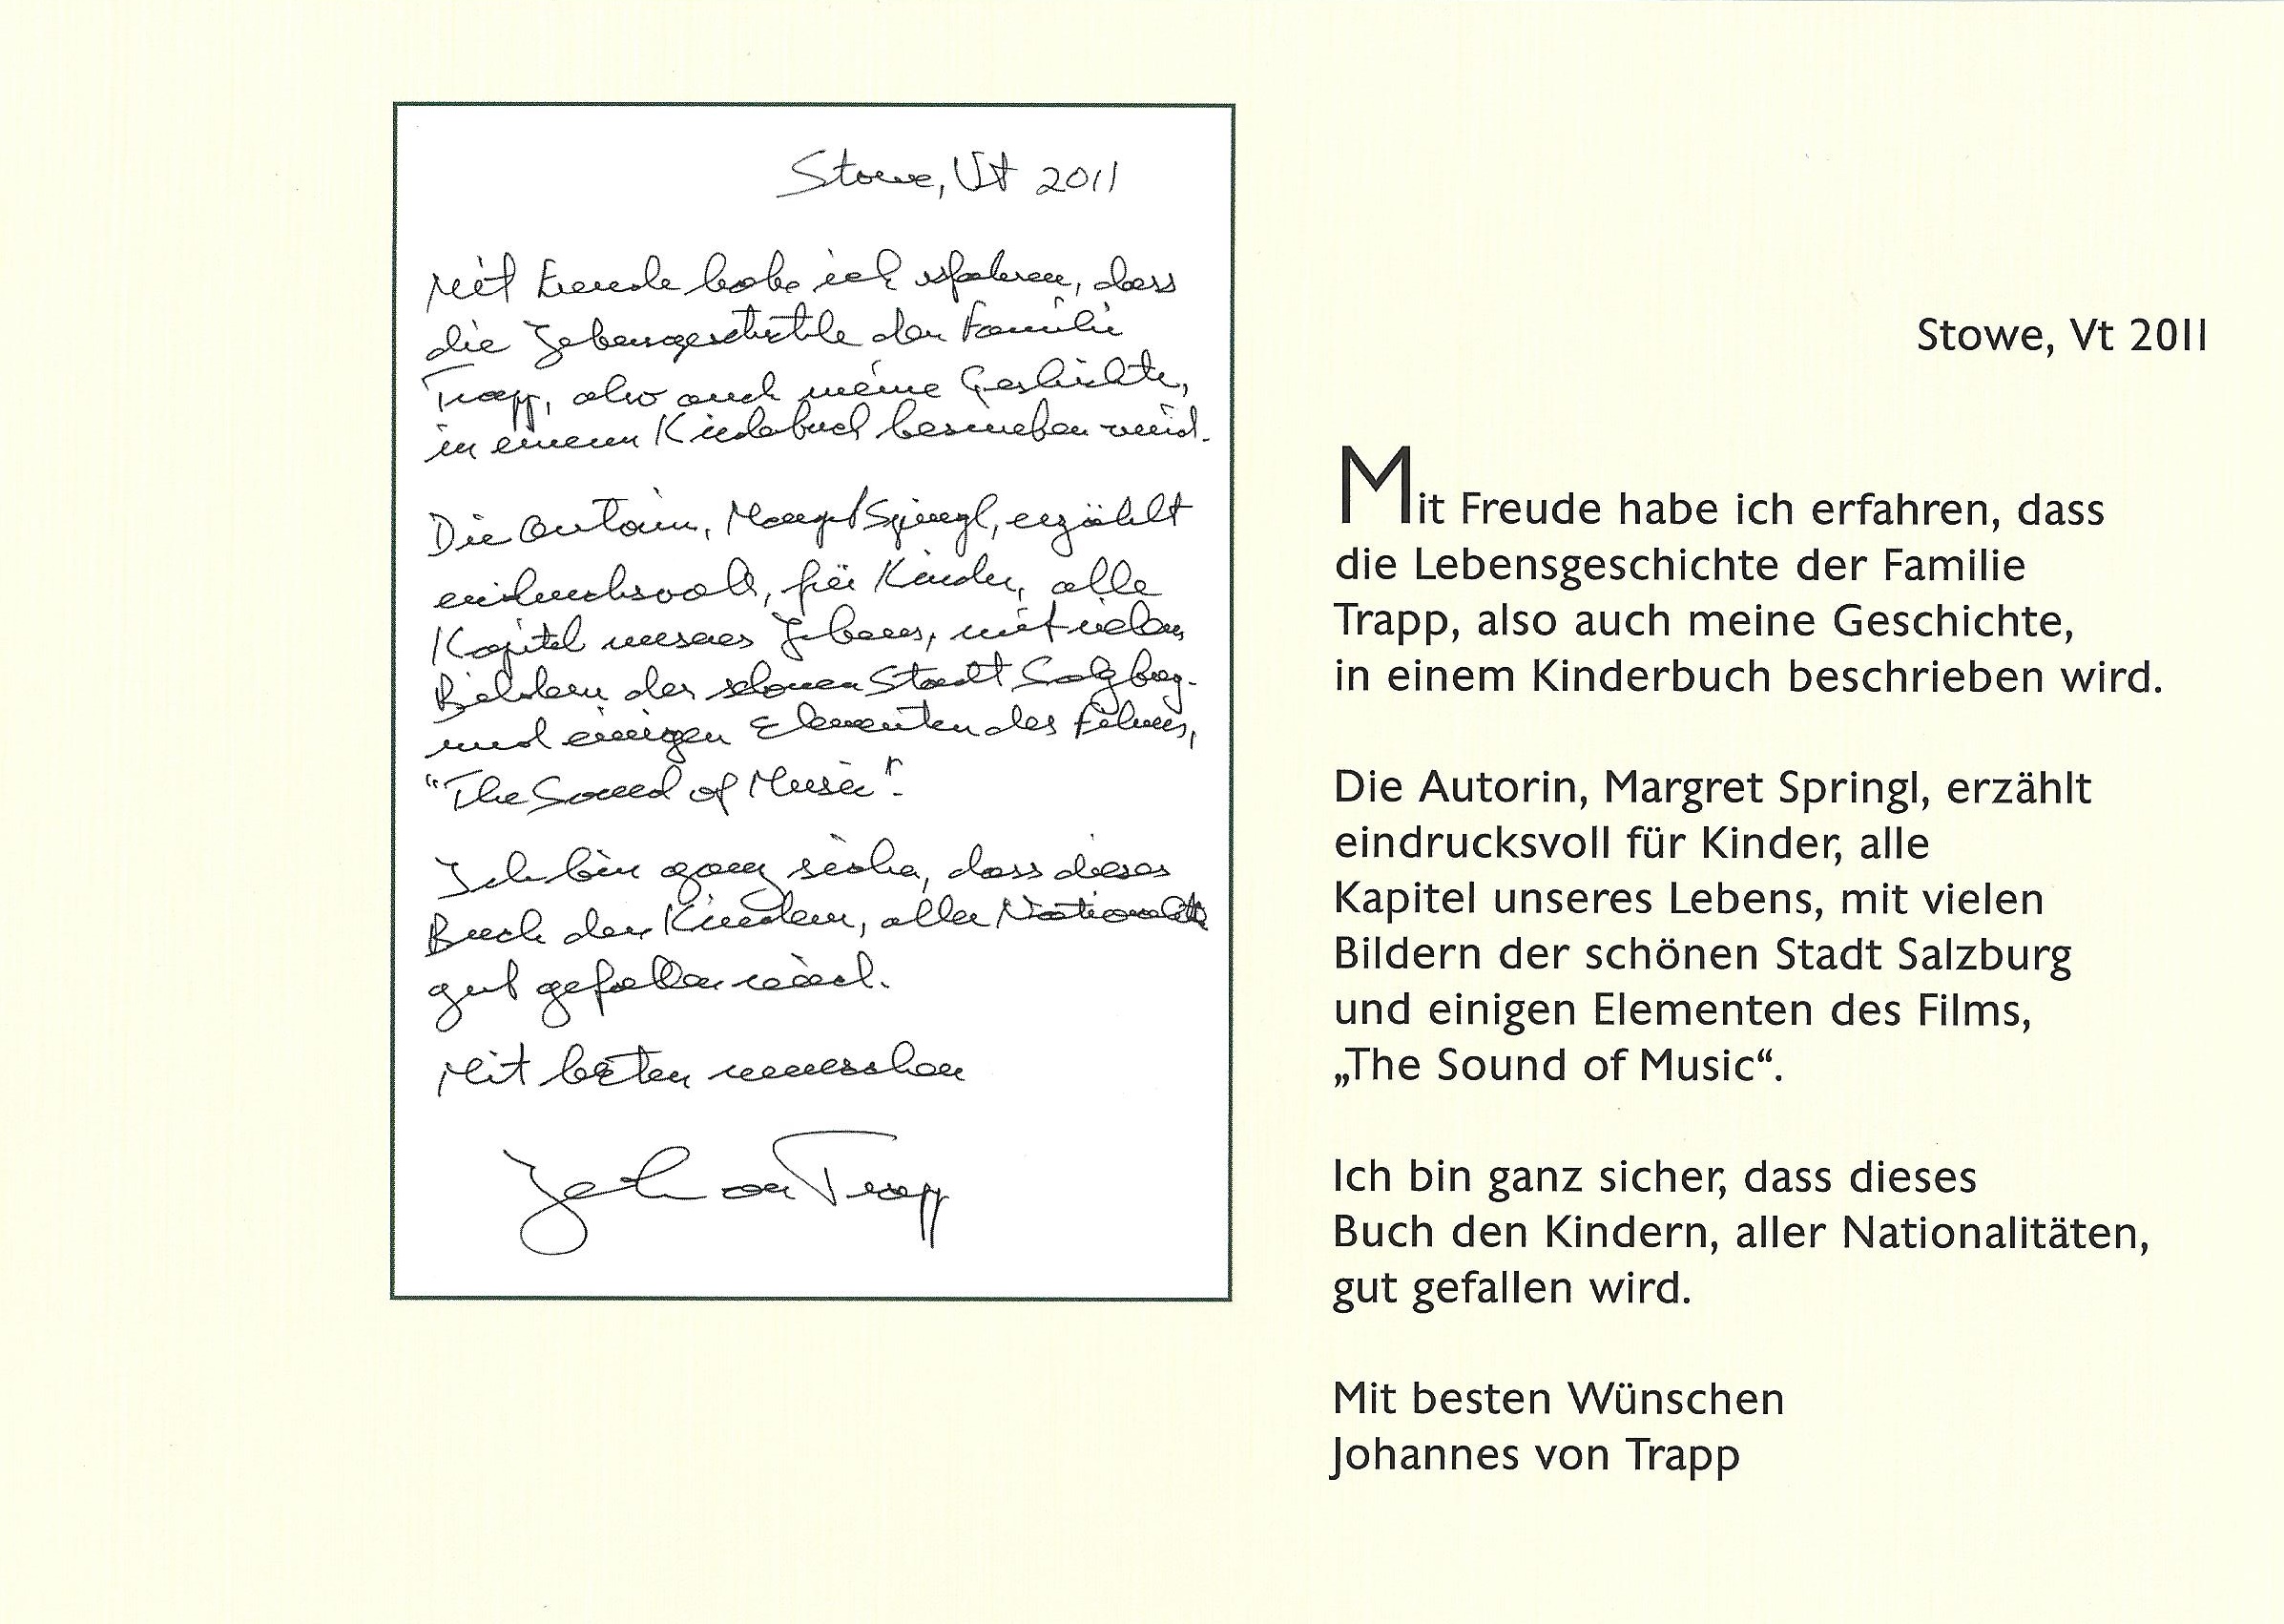 Stowe, Vt 2011
Mit Freude habe ich erfahren, dass
die Lebensgeschichte der Familie
Trapp, also auch meine Geschichte,
in einem Kinderbuch beschrieben wird.
Die Autorin, Margret Springl, erzählt
eindrucksvoll, für Kinder, alle
Kapitel unseres Lebens, mit vielen
Bildern der schönen Stadt Salzburg
und einigen Elementen des Films,
"The Sound of Music".
Ich bin ganz sicher, dass dieses
Buch den Kindern, aller Nationalitäten
gut gefallen wird.
Mit besten Wünschen
Johannes von Trapp
Stowe, Vt 2011
Mit Freude habe ich erfahren, dass
die Lebensgeschichte der Familie
Trapp, also auch meine Geschichte,
in einem Kinderbuch beschrieben wird.
Die Autorin, Margret Springl, erzählt
eindrucksvoll für Kinder, alle
Kapitel unseres Lebens, mit vielen
Bildern der schönen Stadt Salzburg
und einigen Elementen des Films,
„The Sound of Music“.
Ich bin ganz sicher, dass dieses
Buch den Kindern, aller Nationalitäten,
gut gefallen wird.
Mit besten Wünschen
Johannes von Trapp